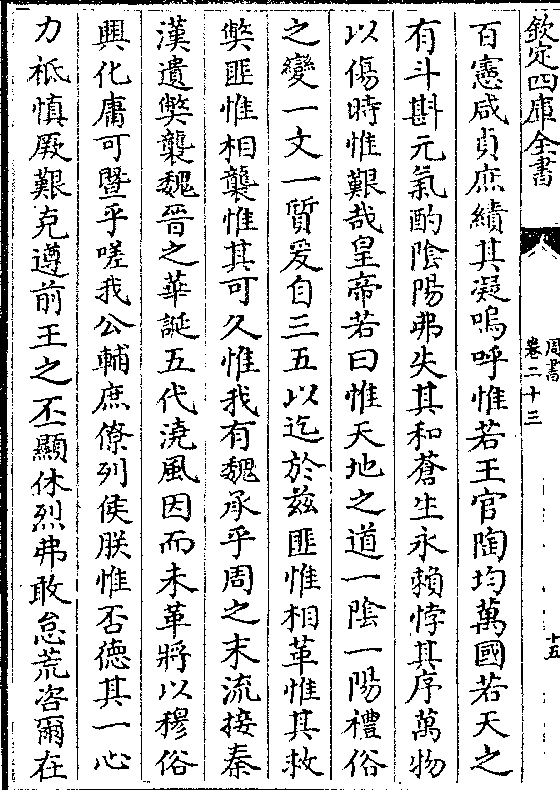 欽定四庫全書
周書
卷二十三
十五
百憲咸貞庶績其凝嗚呼惟若王官陶均萬國若天之
有斗斟元氣酌陰陽弗失其和蒼生永賴悖其序萬物
以傷時惟艱哉皇帝若曰惟天地之道一陰一陽禮俗
之變一文一質爰自三五以迄於茲匪惟相革惟其救
獘匪惟相襲惟其可久惟我有魏承乎周之末流接秦
漢遺獘襲魏晉之華誕五代澆風因而未革將以穆俗
興化庸可暨乎嗟我公輔庶僚列侯朕惟否德其一心
力祗慎厥艱克遵前王之丕顯休烈弗敢怠荒咨爾在